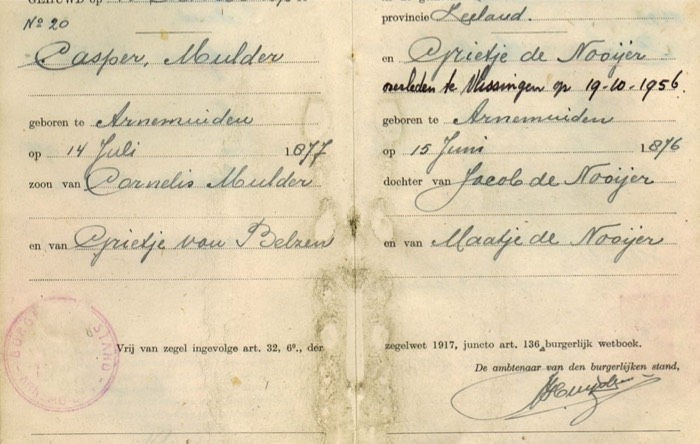 GEHUWD op
No 20
Casper, Mulder
geboren te Arnemuiden
op 14 Juli 1877
zoon van Cornelis Mulder
en van Grietje van Belzen
BURG STAND
Vrij van zegel ingevolge art. 32, 6°., der
provincie Zeeland.
en Grietje de Nooijer
overleden te Vlissingen op 19-10-1956.
geboren te Arnemuiden
op 15 Juni 1876
dochter van Jacob de Nooijer
en van Maatje de Nooijer
zegelwet 1917, juncto art. 136 burgerlijk wetboek.
De ambtenaar van den burgerlijken stand,